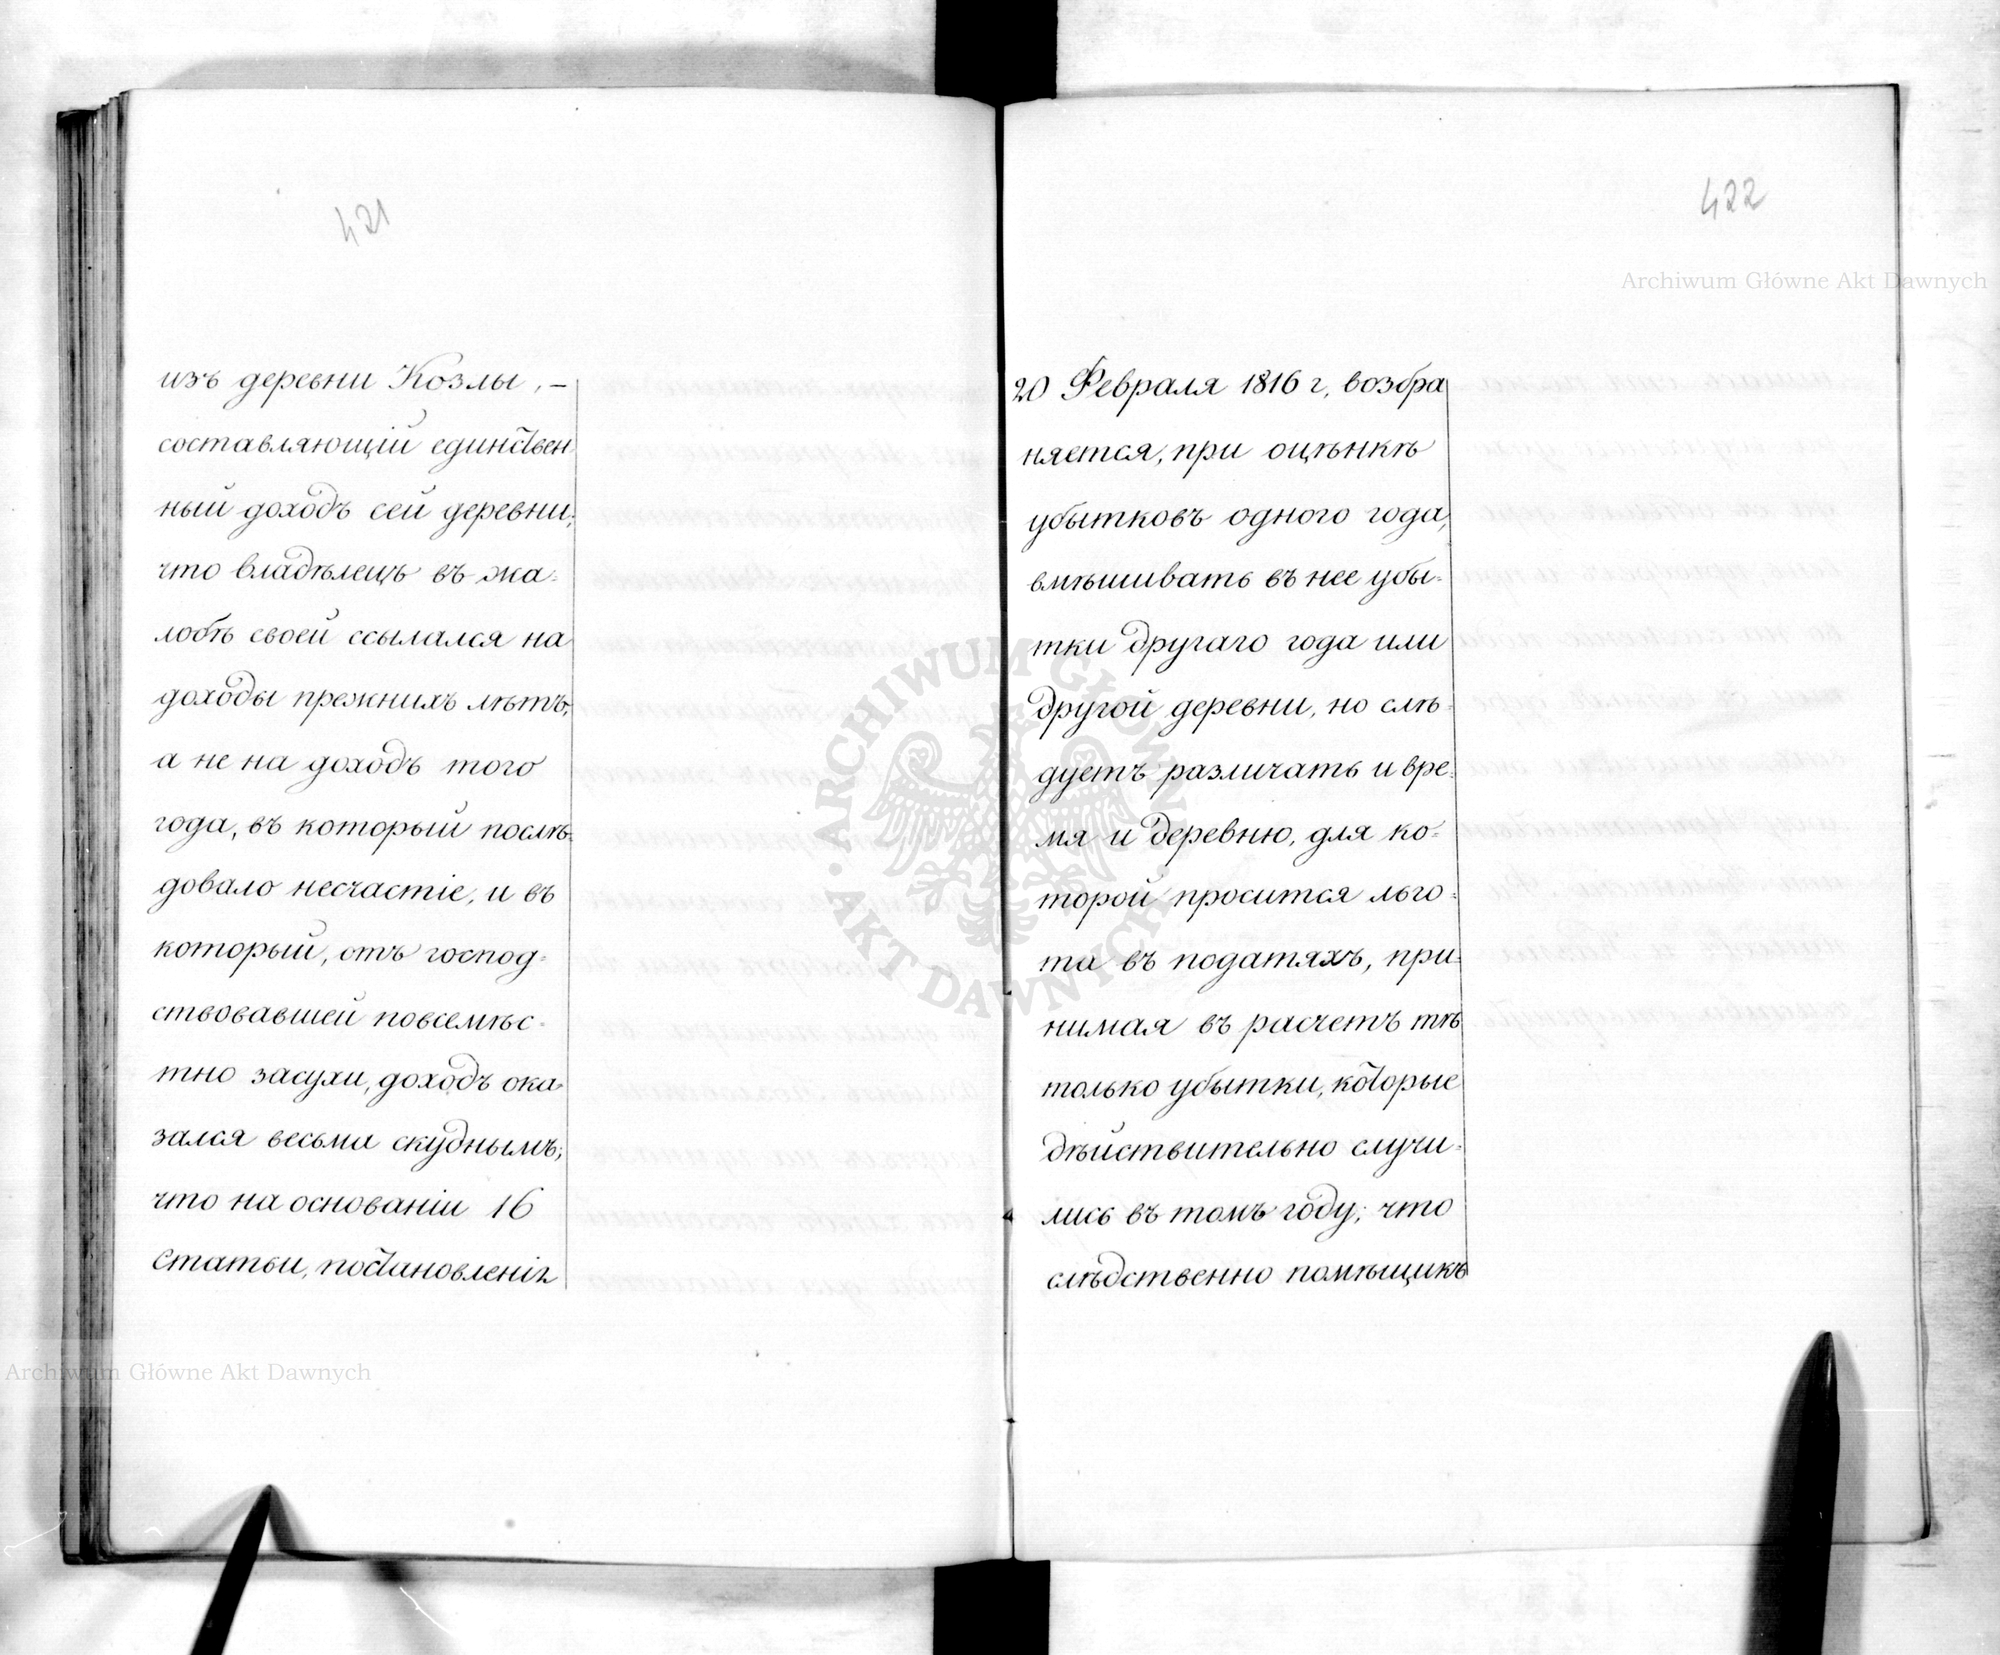 421
изъ деревни Козлы, –
составляющій единствен
ный доходъ сей деревни;
что владѣлецъ въ жа-
лобѣ своей ссылался на
доходы прежнихъ лѣтъ,
а не на доходъ того
года, въ который послѣ-
довало несчастіе, и въ
который, отъ господ-
ствовавшей повсемѣс-
тно засухи, доходъ ока-
зался весьма скуднымъ;
что на основаніи 16
Статьи, постановленія
422
20 Февраля 1816 г, возбра
няется, при оцѣнкѣ
убытковъ одного года,
вмѣшивать въ нее убы-
тки другаго года или
другой деревни, но слѣ-
дуетъ различать и вре-
мя и деревню, для ко-
торой просится льго-
та въ податяхъ, при-
нимая въ расчетъ тѣ
только убытки, которые
дѣйствительно случи-
лись въ томъ году; что
слѣдственно помѣщикъ
Archiwum Główne Akt Dawnych
ARCHIWUM GŁÓWNE AKT DAWNYCH
Archiwum Główne Akt Dawnych